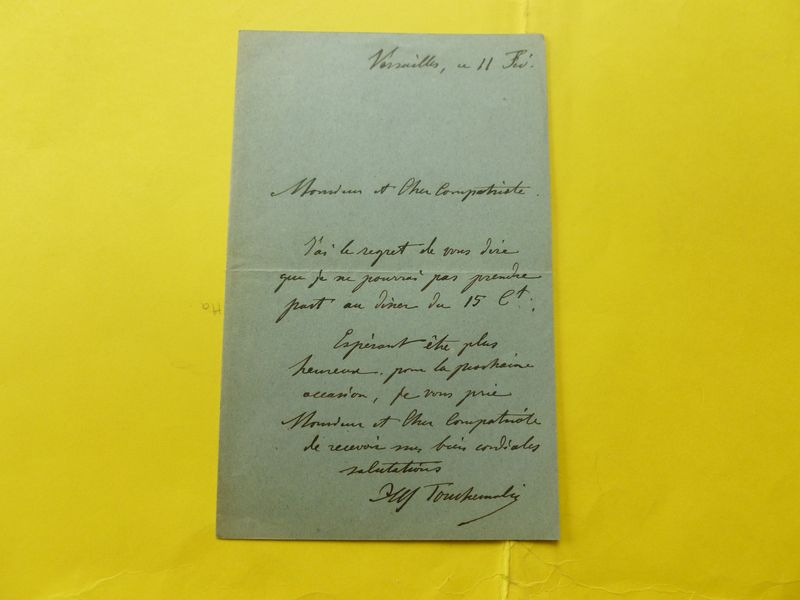 Versailles, ce 11 Fév.
Monsieur et Cher Compatriote.
J'ai le regret de vous dire
que je ne pourrai pas prendre
part au dîner du 15 Ct.;
Espérant être plus
heureux pour la prochaine
occasion, je vous prie
Monsieur et Cher Compatriote
de recevoir mes bien cordiales
salutations
Touchemolin